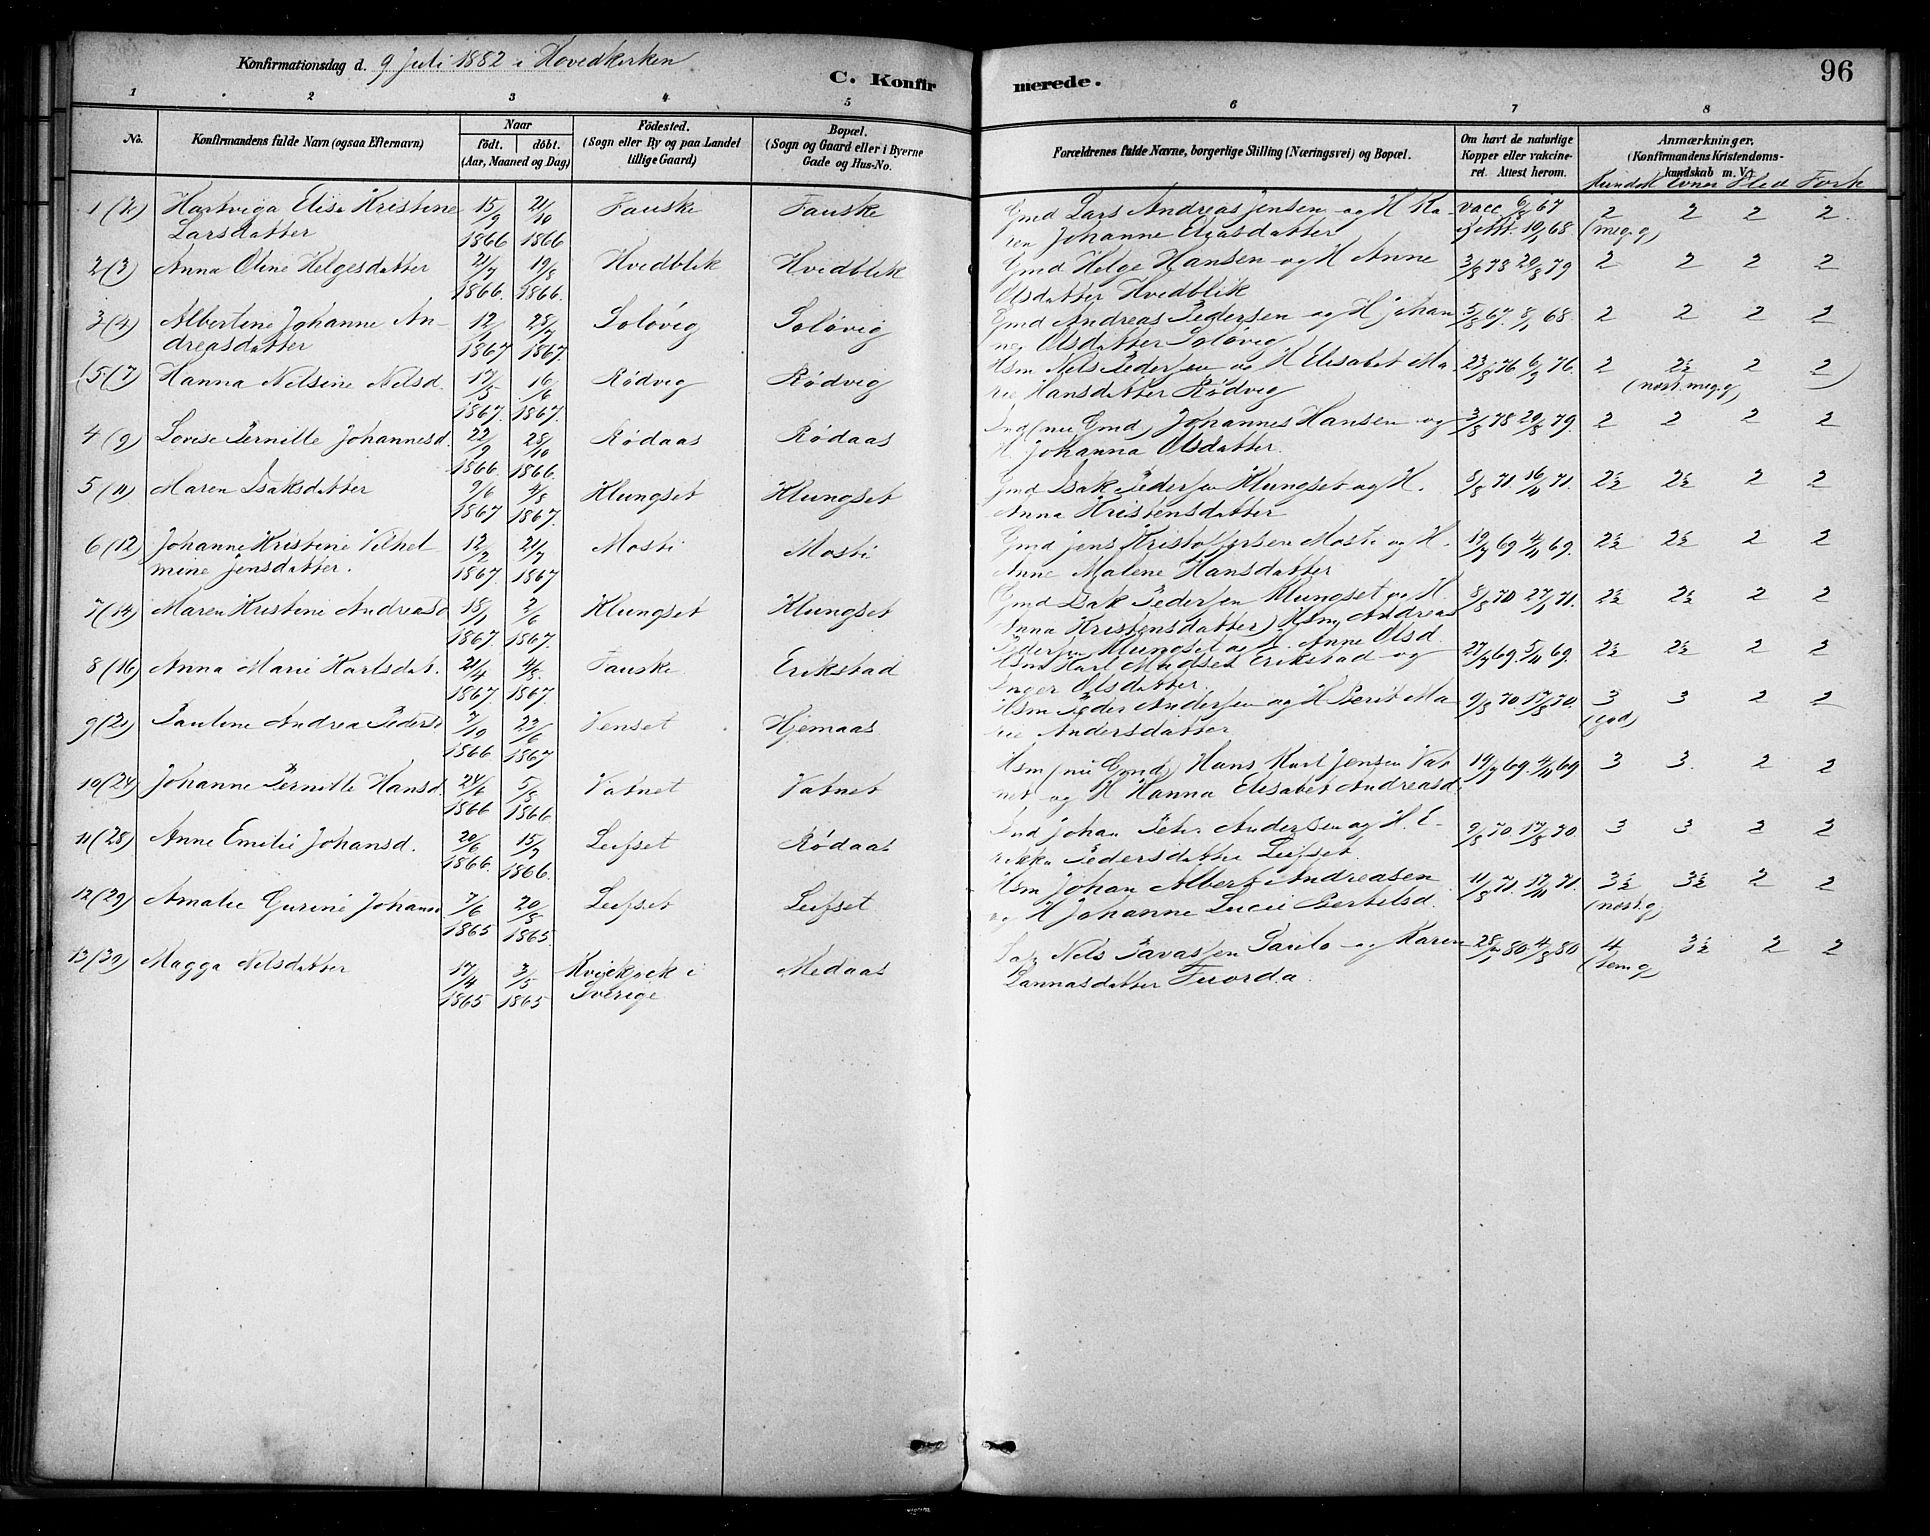 Konfirmationsdag d. 9 Juli 1882 i Hovedkirken
C. Konfirmerede.
96
1 2 3 4 5 6 7 8
No.
Konfirmandens fulde Navn (ogsaa Efternavn)
Naar
født. døbt.
(Aar, Maaned og Dag)
Fødested.
(Sogn eller By og paa Landet
tillige Gaard)
Bopæl.
(Sogn og Gaard eller i Byerne
Gade og Hus-No.
Forældrenes fulde Navne, borgerlige Stilling (Næringsvei) og Bopæl.
Om havt de naturlige
Kopper eller vakcine-
ret. Attest herom.
Anmærkninger.
(Konfirmandens Kristendoms-
kundskab m. V.)
Kundsk Evner Flid Forh
1 (2) Hartviga Elise Kristine 15/9 21/10 Fauske Fauske Gmd Lars Andreas Jensen og H Ka- vacc 6/8 67 2 2 2 2
Larsdatter 1866 1866 ren Johanne Eliasdatter Att. 10/5 68. (meg.g)
2 (3) Anna Oline Helgesdatter 21/7 19/8 Hvidblik Hvidblik Gmd Helge Hansen og H Anne 3/8 78 20/8 79 2 2 2 2
1866. 1866. Olsdatter Hvidblik
3 (4) Albertine Johanne An- 12/ 28/7 Soløvig Soløvig Gmd Andreas Pedersen og H Johan 5/8 67. 8/1 68. 2 2 2 2
dreasdatter 1867 1867. ne Olsdatter Soløvig
(5 (7) Hanna Nelsine Nelsd. 17/5 16/6 Rødvig Rødvig Hsm Nels Pedersen og H Elisabet Ma- 23/8 76 6/9 76. 2 2½ 2 2)
1867. 1867. rie Hansdatter Rødvig (næst.meg.g)
4 (9) Lovise Pernille Johannesd. 22/9 28/10 Rødaas Rødaas Ind (nu Gmd) Johannes Hansen og 3/8 78 20/8 79. 2 2 2 2
1866. 1866. H Johanna Olsdatter.
5 (11) Maren Isaksdatter 9/6 4/8 Klungset Klungset Gmd Isak Pedersen Klungset og H. 8/8 71 16/11 71. 2½ 2½ 2 2
1867 1867. Anna Kristensdatter
6 (12) Johanne Kristine Vilhel- 12/2 21/7 Mosti Mosti Gmd Jens Kristoffersen Mosti og H. 19/7 69 4/11 69. 2½ 2½ 2 2
mine Jensdatter. 1867. 1867 Anne Malene Hansdatter
7 (14) Maren Kristine Andreasd 18/1 2/6 Klungset Klungset Gmd Isak Pedersen Klungset og H. 8/8 70 27/ 71. 2½ 2½ 2 2
1867. 1867. Anna Kristensdatter) Hsm Andreas
Pedersen Klungset og H. Anne Olsd.
8 (16) Anna Marie Karlsdat. 21/4 4/8 Fauske Erikstad Hsm Karl Erikstad og 27/7 69. 5/11 69. 2½ 2½ 2 2
1867 1867 Inger Olsdatter
9 (21) Pauline Andrea Peders 7/10 23/6 Venset Hjemaas Hsm Peder Andersen og H Berit Ma- 9/8 70 17/8 70. 3 3 2 2
1866 1867 rie Andersdatter (god)
10 (24) Johanne Pernille Hansd. 24/6 5/8 Vatnet Vatnet Hsm (nu Gmd) Hans Karl Jensen Vat- 19/7 69. 4/11 69 3 3. 2 2
1866 1866 net og H Hanna Elisabet Andreasd.
11 (28) Anne Emilie Johansd. 20/6 15/7 Leifset Rødaas Ind Johan Peter Andersen og H. E- 9/8 70. 17/8 70. 3 3 2 2
1866. 1866. rikka Pedersdatter Leifset.
12 (29) Amalie Gurine Johans 7/6 20/8 Leifset Leifset Hsm Johan Albert Andreasen 11/8 71. 17/11 71. 3½ 3½ 2 2
1865 1865. og H Johanne Lucie Bertelsd. (næst.g)
13 (39) Magga Nelsdatter 17/4 3/5 Kvickjock i Medaas Nels Tavassen Parilo og Karen 28/7 80. 4/8 80 4 3½ 2 2
1865 1865 Sverige Lannasdatter Tuorda. (tem.g)